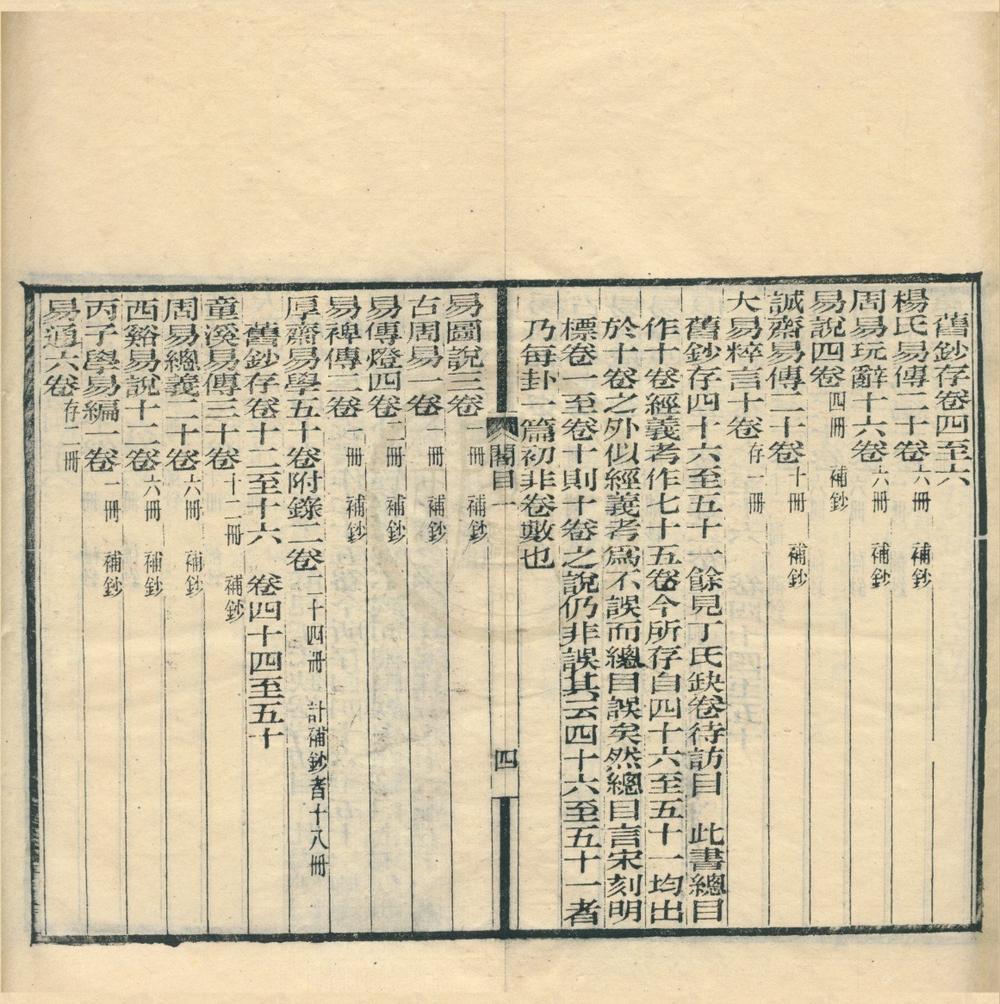 舊鈔存卷四至六
楊氏易傳二十卷 六冊 補鈔
周易玩辭十六卷 六冊 補鈔
易說四卷 四冊 補鈔
誠齋易傳二十卷 十冊 補鈔
大易粹言十卷 存一冊
舊鈔存四十六至五十一餘見丁氏缺卷待訪目 此書總目
作十卷經義考作七十五卷今所存自四十六至五十一均出
於十卷之外似經義考爲不誤而總目誤矣然總目言宋刻明
標卷一至卷十則十卷之說仍非誤其云四十六至五十一者
乃每卦一篇初非卷數也
閣目一
四
易圖說三卷 一冊 補鈔
古周易一卷 一冊 補鈔
易傳燈四卷 二冊 補鈔
易裨傳二卷 一冊 補鈔
厚齋易學五十卷附錄二卷 二十四冊 計補鈔者十八冊
舊鈔存卷十二至十六 卷四十四至五十
童溪易傳三十卷 十二冊 補鈔
周易總義二十卷 六冊 補鈔
西谿易說十二卷 六冊 補鈔
丙子學易編一卷 一冊 補鈔
易通六卷 存二冊